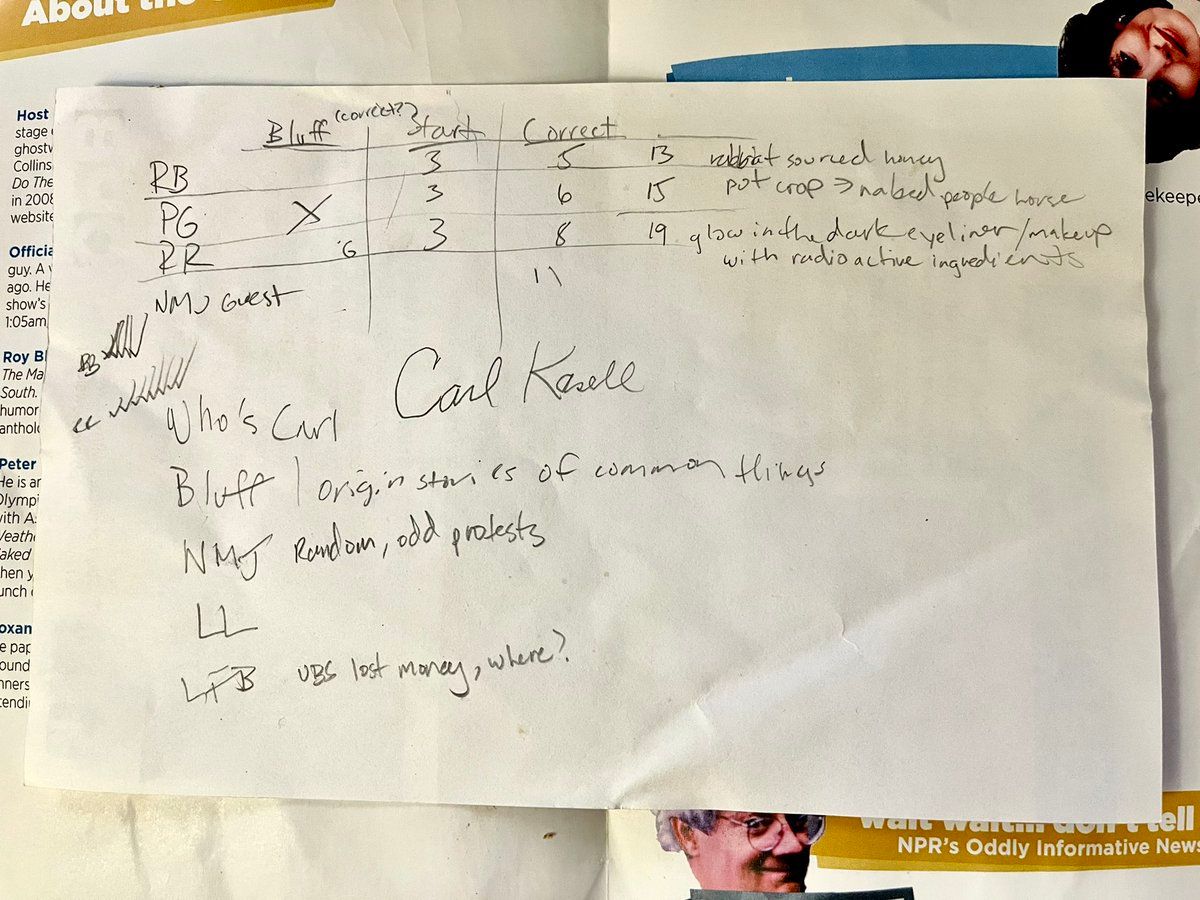 About the
Host
stage
ghostw
Collins
Do The
in 2008
website
Officia
guy. A
ago. He
show's
1:05am
Roy Bl
The Ma
South.
humor
antholo
Peter
He is ar
Olympi
with A
Weathe
aked
hen y
unch
oxan
e pap
ound
nners
tendi
Bluff (correct?) Start Correct
RB 3 5 13 rabbit sourced honey
PG X 3 6 15 pot crop → naked people horse
RR 3 8 19 glow in the dark eyeliner/makeup
with radioactive ingredients
NMJ Guest 11
RB
cc
Carl Kasell
Who's Carl
Bluff | origin stories of common things
NMJ Random, odd protests
LL
LFB UBS lost money, where?
ekeepe
wait wait... don't tell
NPR's Oddly Informative News